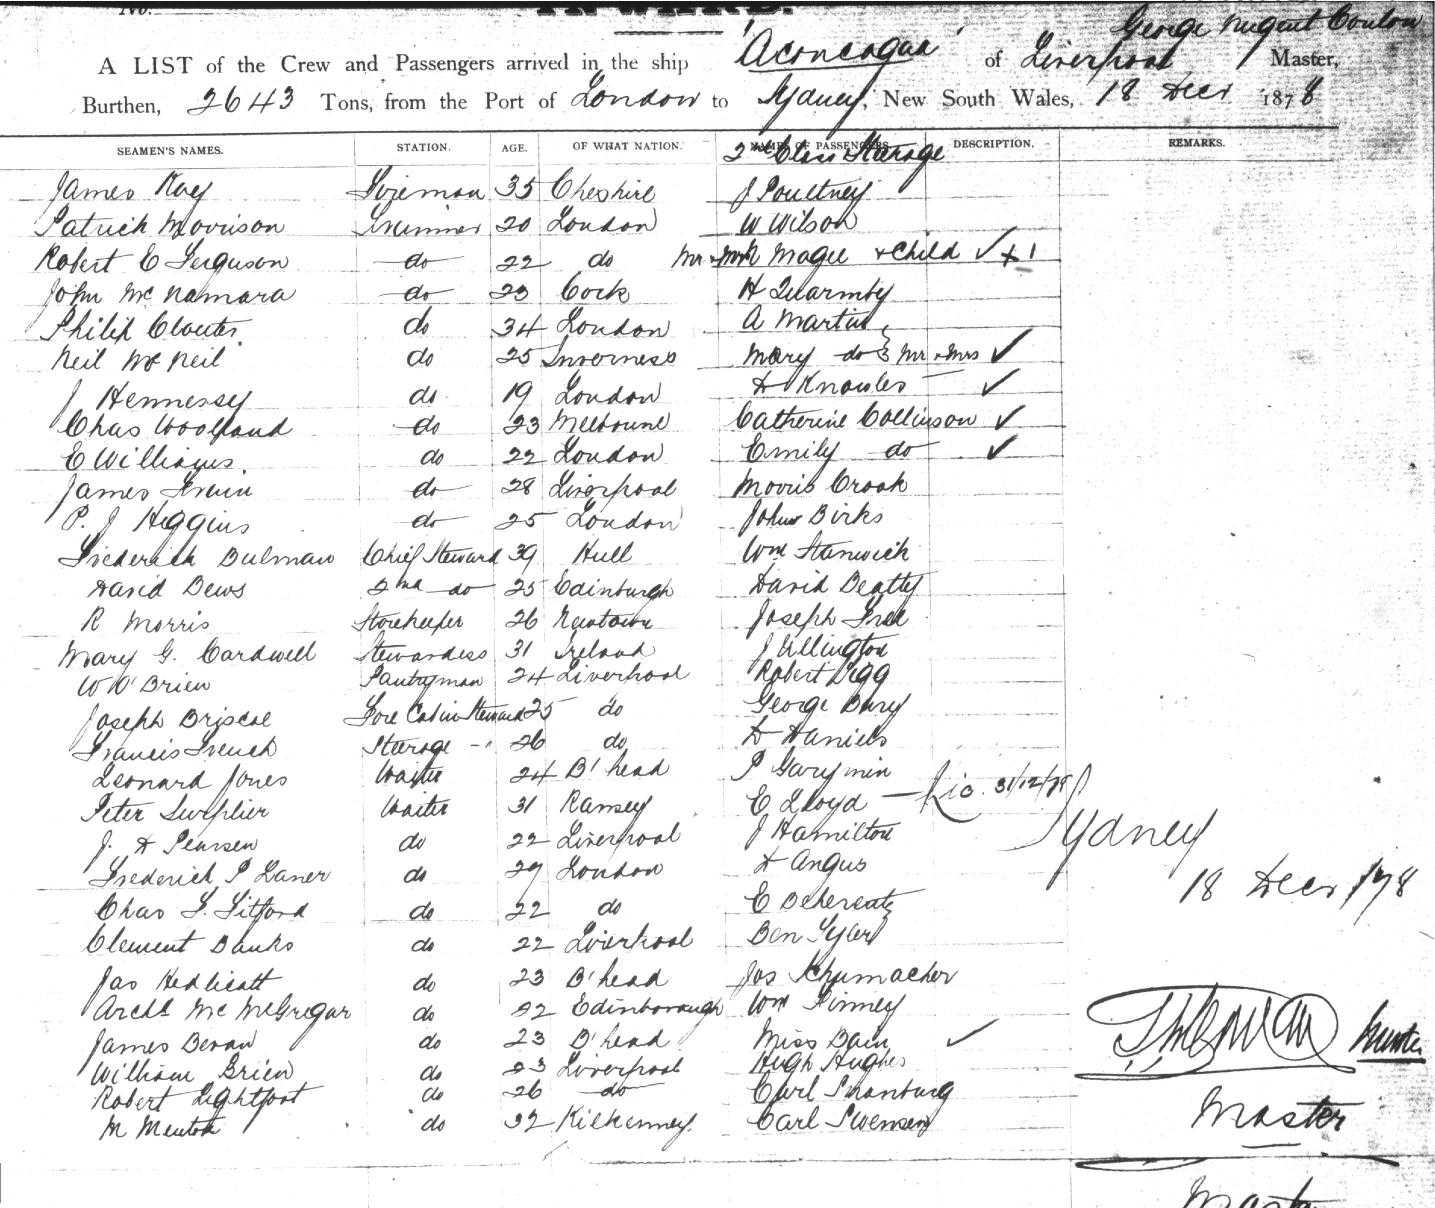 No.
INWARD.
George Nugent Conlan
A LIST of the Crew and Passengers arrived in the ship 'Aconcagua' of Liverpool Master,
Burthen, 2643 Tons, from the Port of London to Sydney, New South Wales, 18 Decr 1878
SEAMEN'S NAMES. STATION. AGE. OF WHAT NATION. NAMES OF PASSENGERS. DESCRIPTION. REMARKS.
2nd Class Steerage
James Kay Fireman 35 Cheshire J Poultney
Patrick Morrison Trimmer 20 London W Wilson
Robert E Ferguson do 22 do Mr & Mrs R Magee & Child ✓ + 1
John McNamara do 23 Cork H Quarmby
Philip Clouter do 34 London A Martin
Neil McNeil do 25 Inverness Mary do } Mr & Mrs ✓
J Hennessy do 19 London D Knowles ✓
Chas Woolland do 23 Melbourne Catherine Collinson ✓
E Williams. do 22 London Emily do ✓
James Irwin do 28 Liverpool Morris Crook
P. J Higgins do 25 London John Birks
Frederick Bulman Chief Steward 39 Hull Wm Stanwick
David Dews 2nd do 25 Edinburgh David Beatty
R Morris Storekeeper 26 Newtown Joseph Free
Mary G. Cardwell Stewardess 31 Ireland J Willington
W O'Brien Pantryman 24 Liverpool Robert Digg
Joseph Briscoe Fore Cabin Steward 25 do George Bury
Francis French Steerage - 26 do D Daniels
Leonard Jones Waiter 24 B'head P Garymin
Peter Waiter 31 Ramsey E Lloyd — 31/12/78
J. H Pearson do 22 Liverpool J Hamilton
Sydney
Frederick P Laner do 27 London D Angus
18 Decr 1878
Chas F. Titford do 22 do E
Clement Banks do 22 Liverpool Ben Tyler
Jas Hedlicott do 23 B'head Jos Schumacher
Archd Mc McGregar do 22 Edinborough Wm Finney
James Bevan do 23 B'head Miss Bain ✓
William Brien do 23 Liverpool Hugh Hughes
Robert Lightfoot do 26 do Carl
Master
M do 22 Kilkenney Carl Swensen